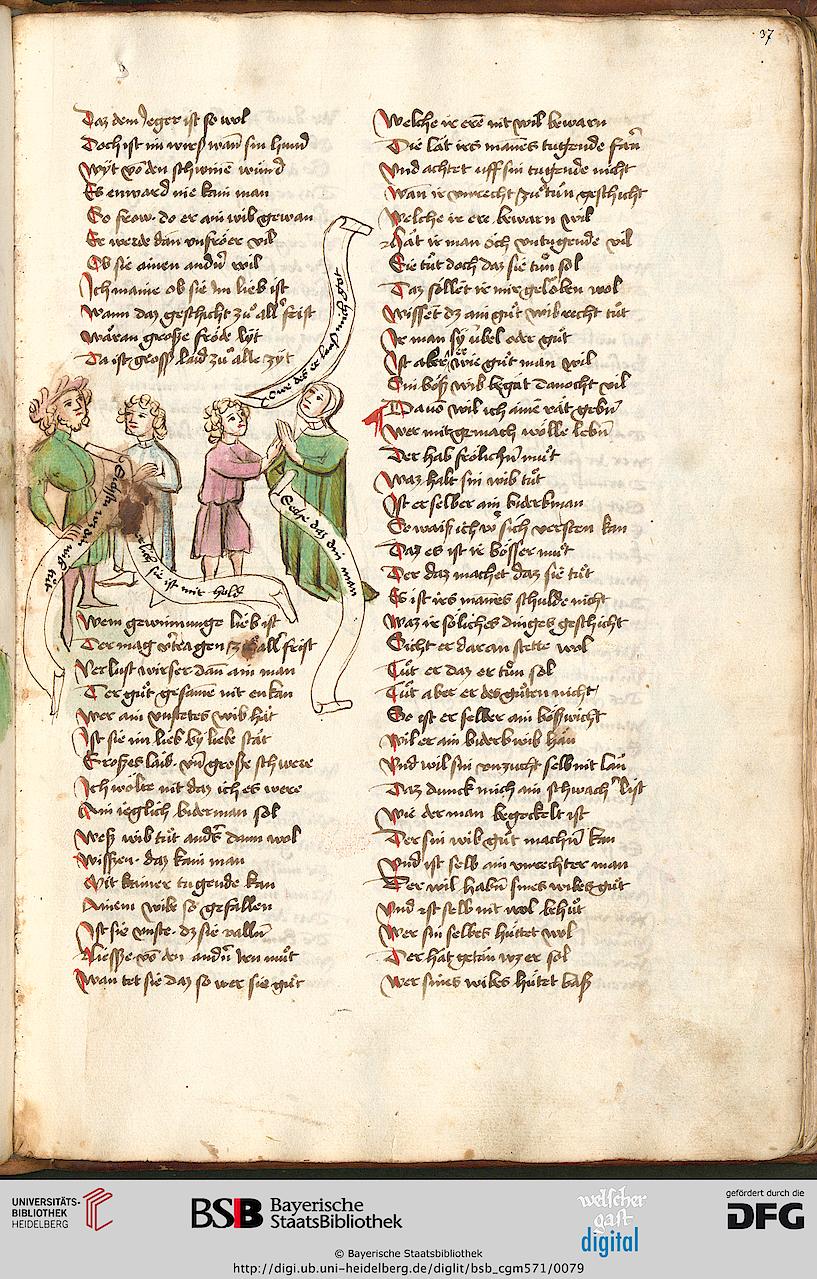 37
Daz dem Jeger ist so wol
Doch ist im wirß wañ sin hund
Wÿt võ den schwinen wund
Es enward nie kain man
So frow do er ain wib gewan
Er werde dañ unfröer vil
Ob sie ainen andñ wil
Ich maine ob sie im lieb ist
Wann daz geschicht zů all' frist
Wåran große fröde lÿt
Da ist groß laid zů alle zÿt
Tůt
Sehe daz din man
sie ist mir hold
Wem gewinnunge lieb ist
Der mag v'tragen zů all' frist
Verlust wirser dañ ain man
Der gůt gesame nit enkan
Wer ain unstetes wib håt
Ist sie im lieb by liebe ståt
Großes laid vñ große schwere
Ich wölte nit daz ich es were
Ain ieglich biderman sol
Weß wib tůt anders dann wol
Wißzen daz kain man
Mit kainer tugende kan
Ainem wibe so gefallen
Ist sie unste dz sie vallñ
Ließze võ den andñ iren můt
Wan tet sie daz so wer sie gůt
Welche ir ere nit wil bewarn
Die låt irs manes tugende farñ
Und achtet uff sin tugende nicht
Wañ ir unrecht zů tůn geschicht
Welche ir ere bewarn wil
Håt ir man öch untugende vil
Sie tůt doch daz sie tůn sol
Daz söllet ir mir gelöben wol
Wisset dz ain gůt wib recht tůt
Ir man sÿ übel oder gůt
Ist aber wie gůt man wil
Ain böß wib begat danocht vil
Dauõ wil ich ainen råt gebñ
Wer mit gemach wölle lebñ
Der hab frölichñ můt
Waz halt sin wib tůt
Ist er selber ain biderbman
So waiß ich wer sich versten kan
Daz es ist ir bösser můt
Der daz machet daz sie tůt
Es ist irs manes schulde nicht
Waz ir söliches dinges geschicht
Sicht er daran stette wol
Tůt er daz er tůn sol
Tůt aber er des gůten nicht
So ist er selber ain bößwicht
Wil er ain biderb wib hån
Und wil sin unzucht selb nit lån
Daz dunck mich ain schwach' list
Wie der man begockelt ist
Der sin wib gůt machñ kan
Und ist selb ain unrechter man
Der wil habñ sines wibes gůt
Und ist selb nit wol behůt
Wer sin selbes hüttet wol
Der håt getån wz er sol
Wer sines wibes hütet baß
UNIVERSITÄTS-
BIBLIOTHEK
HEIDELBERG
BSB Bayerische
StaatsBibliothek
welscher
gast
digital
gefördert durch die
DFG
© Bayerische Staatsbibliothek
http://digi.ub.uni-heidelberg.de/diglit/bsb_cgm571/0079